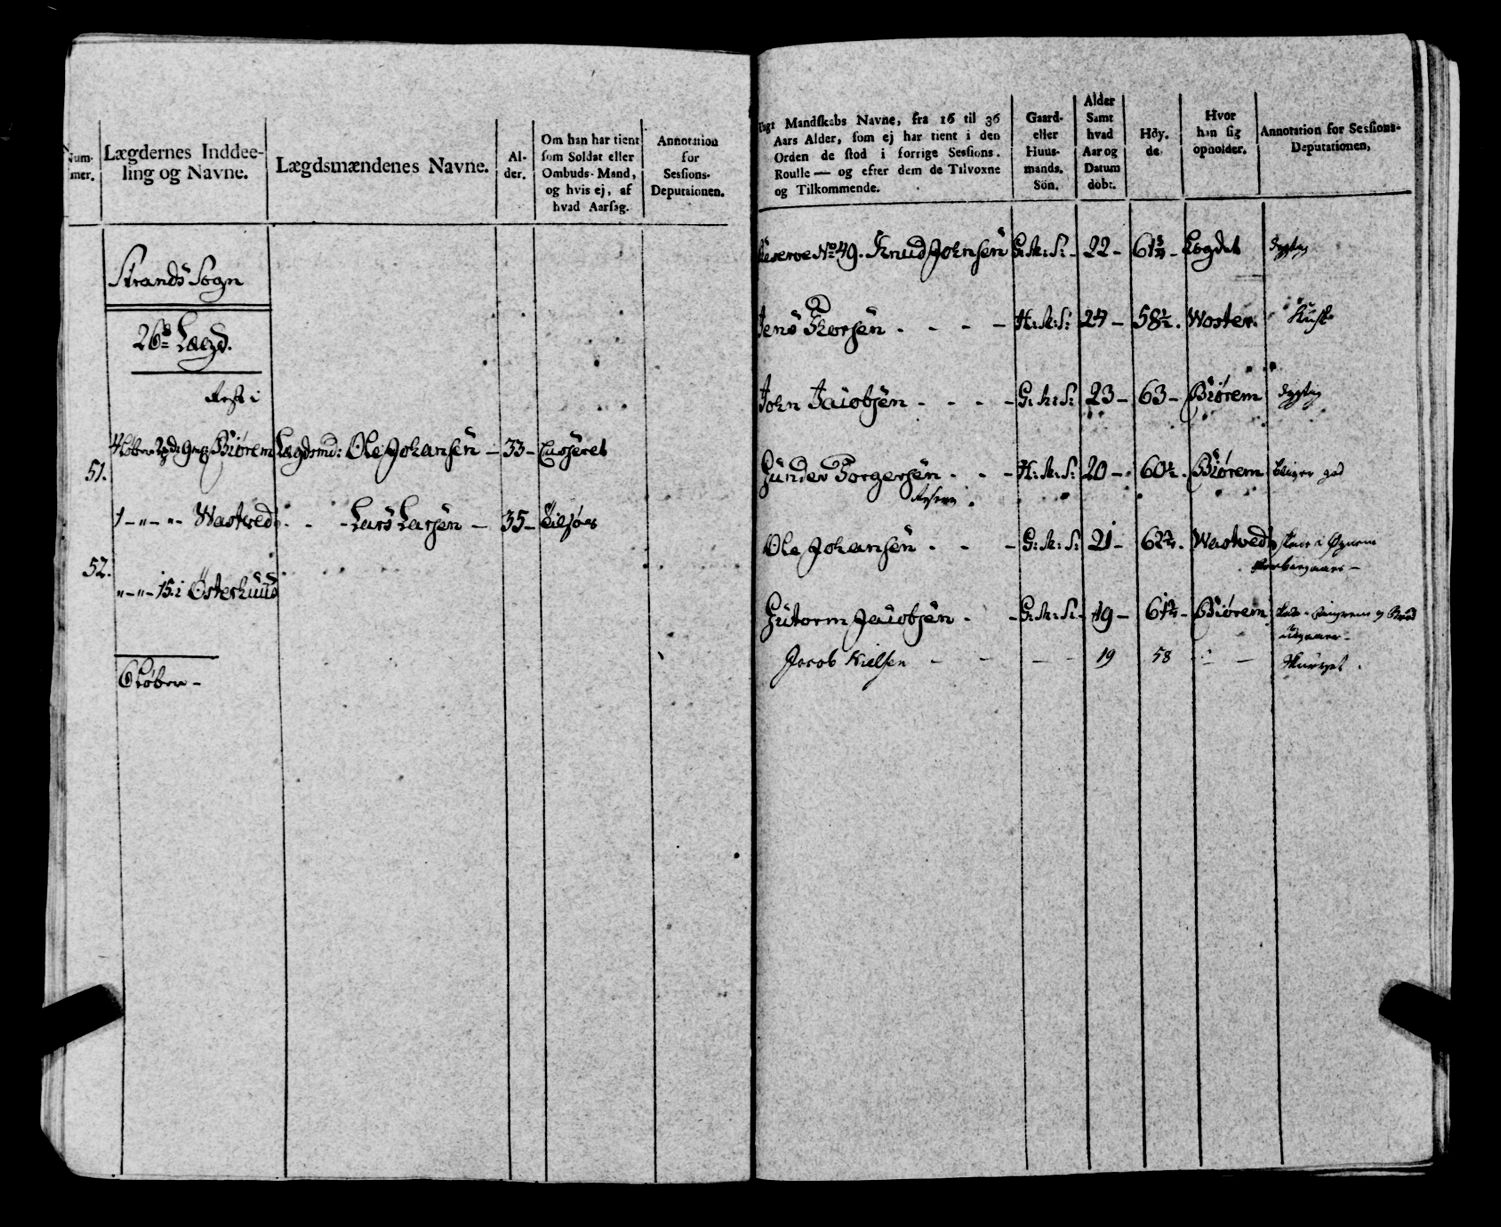 Num-
mer.
Lægdernes Inddee-
ling og Navne.
Lægdsmændenes Navne.
Al-
der.
Om han har tient
som Soldat eller
Ombuds-Mand,
og hvis ej, af
hvad Aarsag.
Annotation
for
Sessions-
Deputaionen.
Strands Sogn
26de Lægd.
Rest i
Biörem Lægdsmd: Ole Johansen — 33 — Casseret
51.
1 — " — " — Wastved - - - Lars Larsen — 35 —
52.
" — " — 15: i Österhuus
6 Köber —
Ungt Mandskabs Navne, fra 16 til 36
Aars Alder, som ej har tient i den
Orden de stod i forrige Sessions-
Roulle — og efter dem de Tilvoxne
og Tilkommende.
Gaard-
eller
Huus-
mands.
Søn.
Alder
Samt
hvad
Aar og
Datum
døbt.
Höy.
de
Hvor
han sig
opholder.
Annotation for Sessions-
Deputationen.
Reserve No 49. Knud Johnsen G: M: S: - 22 - 61 3/4 - Logdet dygtig
Jens Thorsen . - - - H: M: S: 24 - 58 1/2 . Woster.
John Jacobsen - - - - G: M: S: 23 - 63 - Biörem dygtig
Gunder Torgersen - - - H: M: S: 20 - 60 1/2 . Biörem bliver god
Reserve.
Ole Johansen . - - G: M: S: 21 - 62 3/4 . Wastved
Gutorm Jacobsen - - G: M: S: - 19 - 61 3/4 - Biörem
udgaaer -
Jacob Nielsen - - - - 19 58 " -